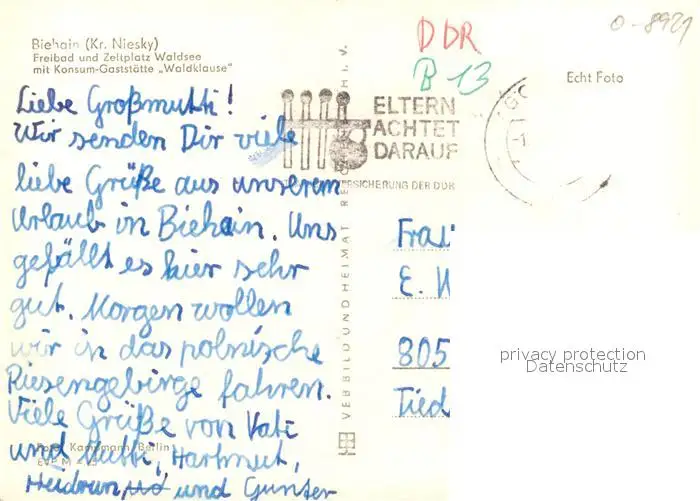 0-8921
Biehain (Kr. Niesky)
Freibad und Zeltplatz Waldsee
mit Konsum-Gaststätte „Waldklause"
DDR
B 13
Echt Foto
ELTERN
ACHTET
DARAUF
VERSICHERUNG DER DDR
Liebe Großmutti!
Wir senden Dir viele
liebe Grüße aus unserem
Urlaub in Biehain. Uns
gefällt es hier sehr
gut. Morgen wollen
wir in das polnische
Riesengebirge fahren.
Viele Grüße von Vati
und Mutti, Hartmut,
Heidrun und Gunter
VEB BILD UND HEIMAT REICHENBACH I. V.
Frau
E.
805
Tied
privacy protection
Datenschutz
Foto: Kampmann, Berlin